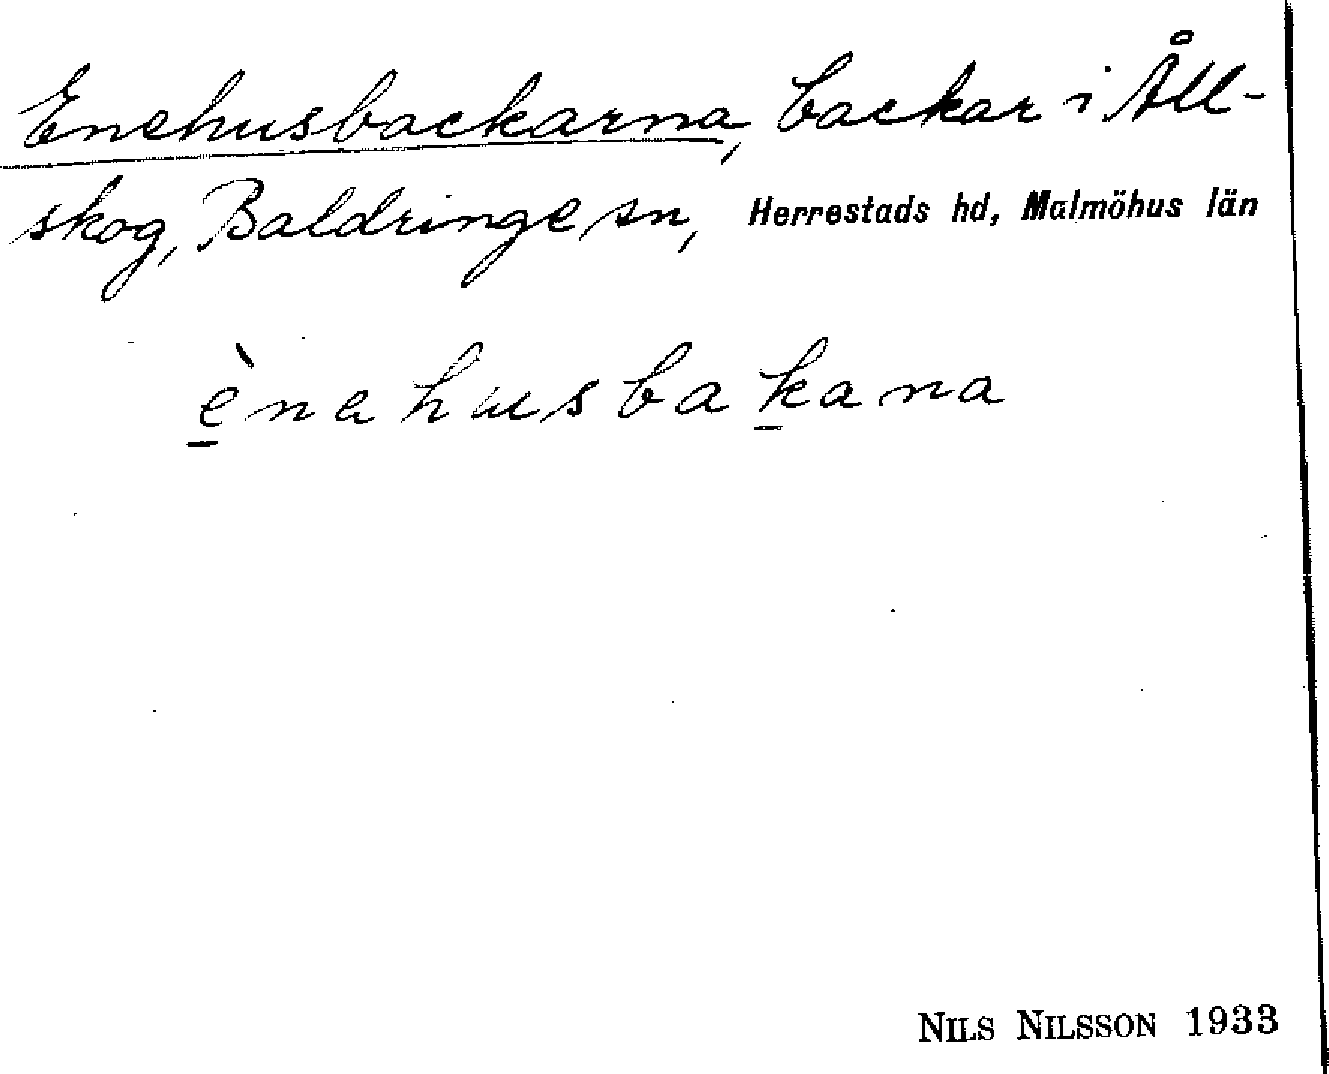 Enehusbackarna, backar i Åll-
skog, Baldringe sn, Herrestads hd, Malmöhus län
ènahusbakana
NILS NILSSON 1933